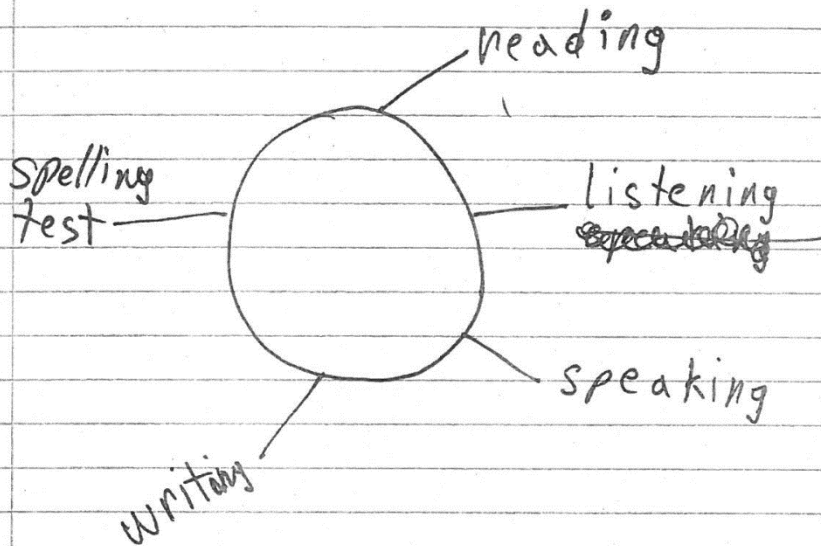 reading
spelling
test
listening
speaking
writing